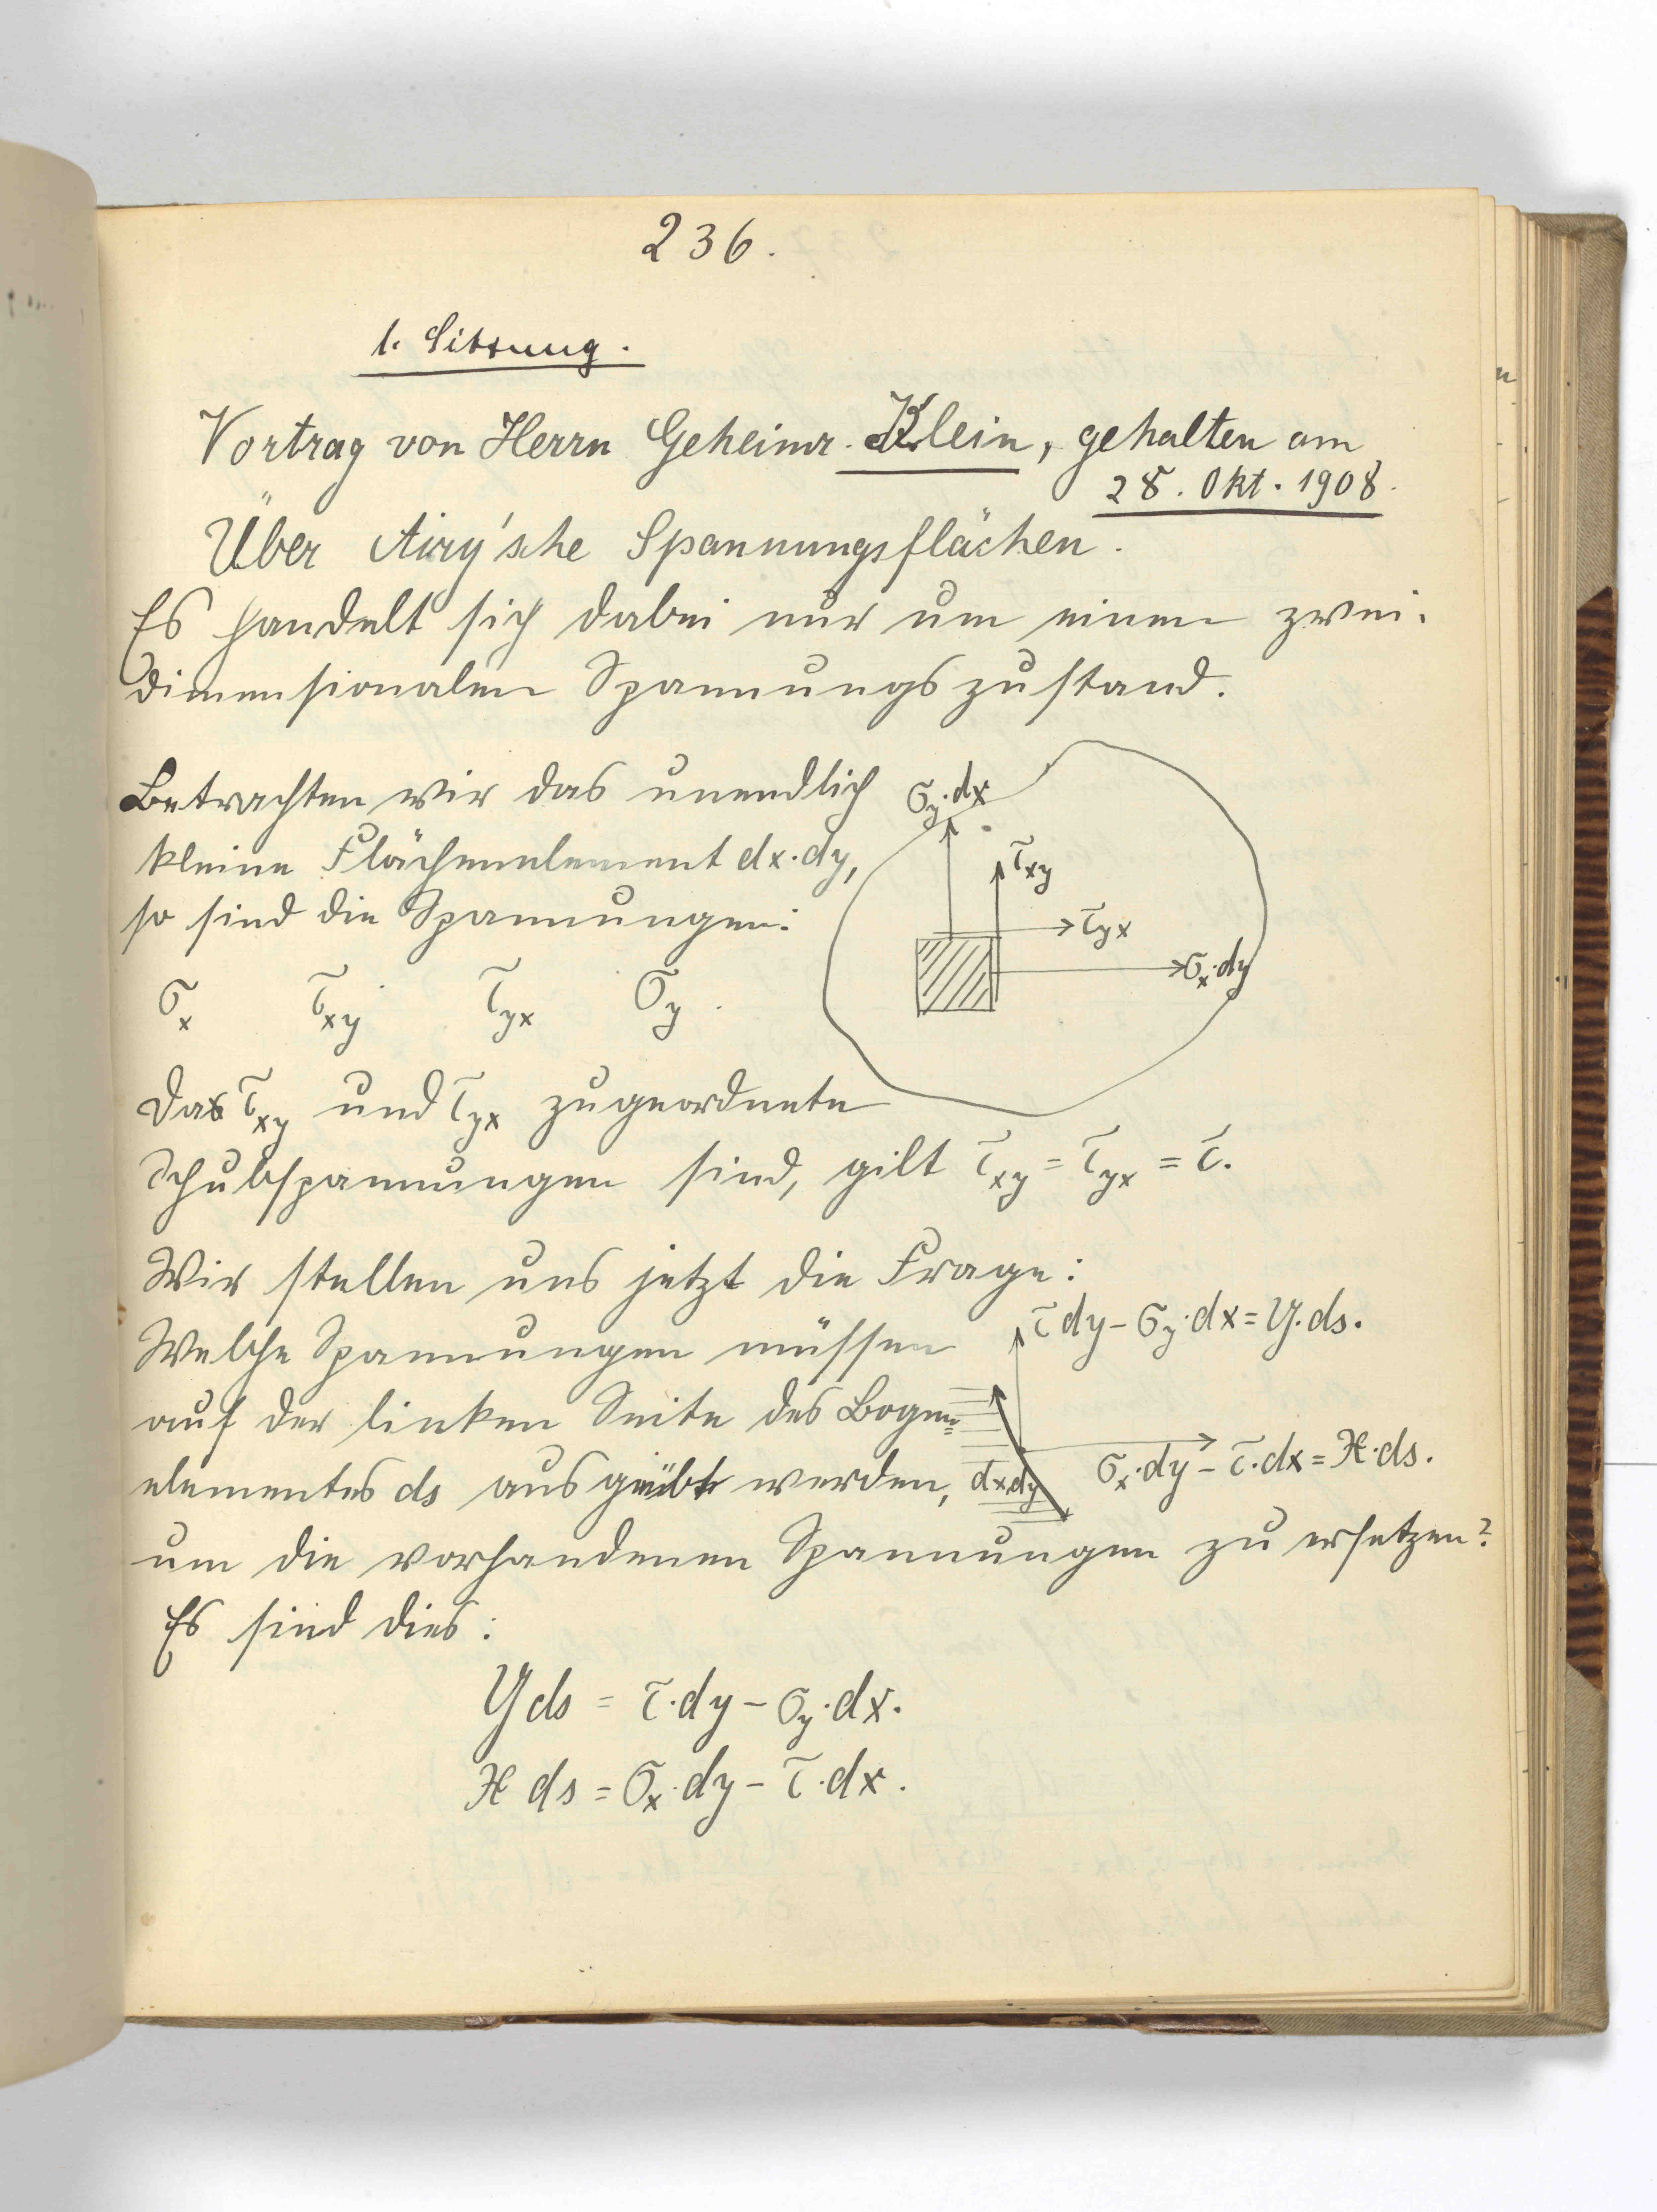 236.
1. Sitzung.
Vortrag von Herrn Geheimr. Klein, gehalten am
28. Okt. 1908.
Über Airy'sche Spannungsflächen.
Es handelt sich dabei nur um einen zwei-
dimensionalen Spannungszustand.
Betrachten wir das unendlich
kleine Flächenelement dx·dy,
so sind die Spannungen:
σy·dx
τxy
τyx
σx·dy
σx τxy τyx σy.
Da τxy und τyx zugeordnete
Schubspannungen sind, gilt τxy = τyx = τ.
Wir stellen uns jetzt die Frage:
Welche Spannungen müssen
auf der linken Seite des Bogen=
elementes ds ausgeübt werden,
um die vorhandenen Spannungen zu ersetzen?
τdy – σy·dx = Y·ds.
dxdy
σx·dy – τ·dx = X·ds.
Es sind dies:
Yds = τ·dy – σy·dx.
X ds = σx·dy – τ·dx.